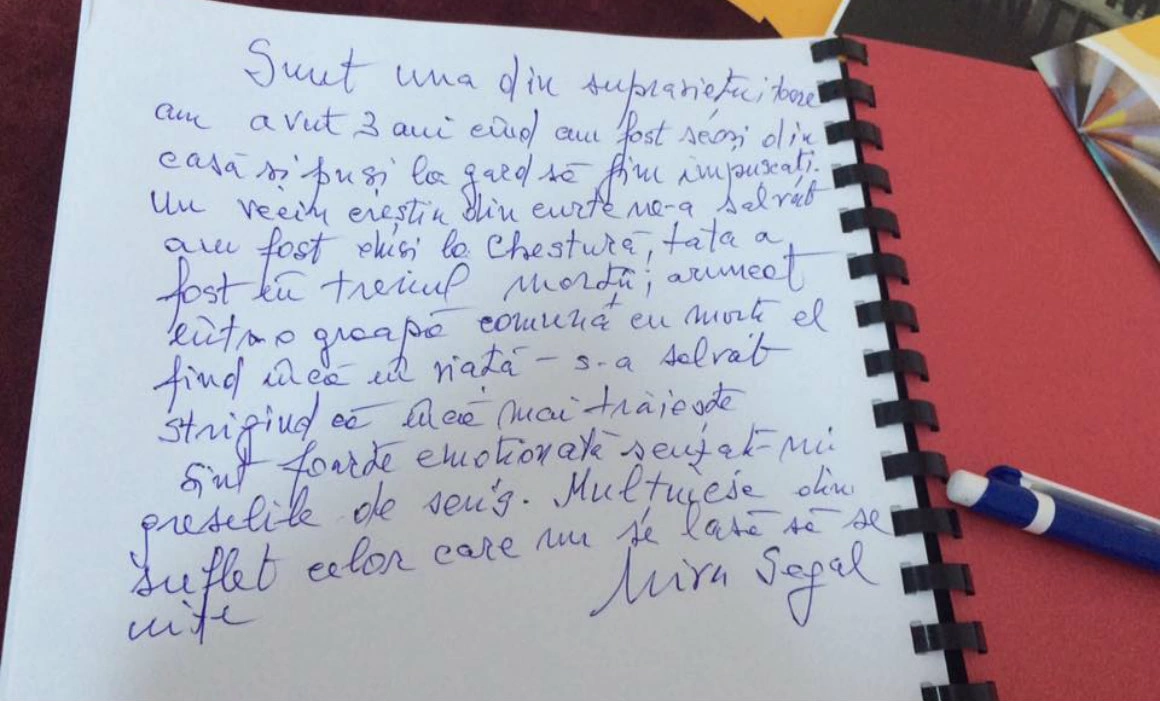 Sunt una din supraviețuitoare
am avut 3 ani cînd am fost scoși din
casă și puși la gard să fim impuscați.
Un vecin creștin din curte ne-a salvat
am fost duși la Chestură, tata a
fost cu trenul morții; aruncat
într-o groapă comună cu morti el
fiind încă in viață - s-a salvat
strigind că încă mai trăiește
Sint foarte emotionată scuzati-mi
greselile de scris. Multumesc din
suflet celor care nu se lasă să se
uite Mira Segal